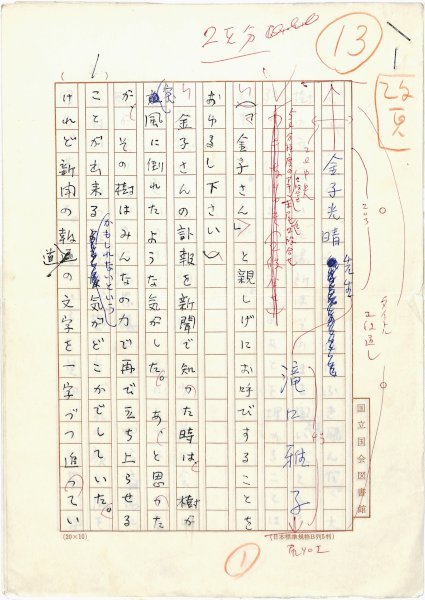 13
2頁
2頁分
金子光晴先生
滝口雅子
タイトル
2段通し
「金子さん」と親しげにお呼びすることを
おゆるし下さい。
金子さんの訃報を新聞で知った時は、樹が
突風に倒れたような気がした。あっと思った
が、その樹はみんなの力で再び立ち上らせる
ことが出来るかもしれないという気がどこかでしていた。
けれど新聞の報道の文字を一字づつ追ってい
国立国会図書館
(20×10)
(日本標準規格B列5判)
1